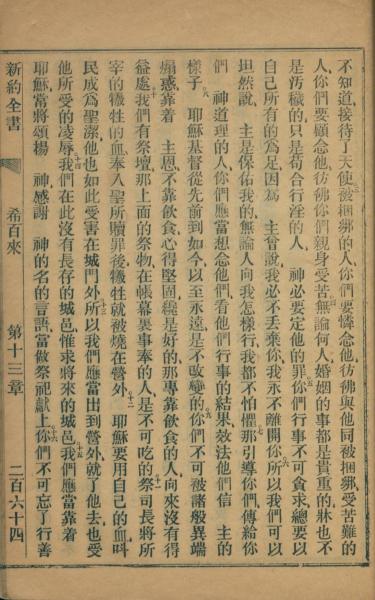 不知道接待了天使被捆綁的人你們要憐念他彷彿與他同被捆綁受苦難的
人你們要顧念他彷彿你們親身受苦無論何人婚姻的事都是貴重的牀也不
是汚穢的只是苟合行淫的人 神必要定他的罪你們行事不可貪求總要以
自己所有的爲足因爲 主曾說我必不丟棄你我永不離開你所以我們可以
坦然說 主是保佑我的無論人向我怎樣行我都不怕懼那引導你們傳給你
們 神道理的人你們應當想念他們看他們行事的結果效法他們信 主的
樣子 耶穌基督從先前到如今以至永遠是不改變的你們不可被諸般異端
煽惑靠着 主恩不靠飲食心得堅固纔是好的那專靠飲食的人向來沒有得
益處我們有祭壇那上面的祭物在帳幕裏事奉的人是不可吃的祭司長將所
宰的犧牲的血奉入聖所贖罪後犧牲就被燒在營外 耶穌要用自己的血呌
民成爲聖潔他也如此受害在城門外所以我們應當出到營外就了他去也受
他所受的凌辱我們在此沒有長存的城邑惟求將來的城邑我們應當靠着
耶穌當將頌揚 神感謝 神的名的言語當做祭祀獻上你們不可忘了行善
新約全書 希百來 第十三章 二百六十四